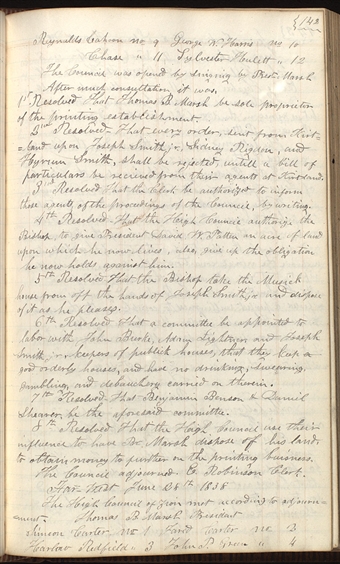 143
Reynolds Cahoon no 9 George W. Harris no 10
Chase " 11 Sylvester Hulett " 12
The Council was opened by singing by Prest. Marsh
After much consultation it was,
1st Resolved That Thomas B. Marsh be sole proprietor
of the printing establishment.
2nd Resolved That every order, sent from Kirt=
=land upon Joseph Smith jr. Sidney Rigdon, and
Hyrum Smith, shall be rejected, untill a bill of
particulars be recieved from their agents at Kirtland.
3rd Resolved That the Clerk be authorized to inform
those agents, of the proceedings of the Council, by writing.
4th Resolved That the High Council authorize the
Bishop to give President David W. Patten an acre of land
upon which he now lives, also, give up the obligation
he now holds against him.
5th Resolved That the Bishop take the Musick
house from off the hands of Joseph Smith jr and dispose
of it as he pleases.
6th Resolved That a committe be appointed to
labor with John Burke, Adam Lightner and Joseph
Smith jr. keepers of publick houses, that they keep
good orderly houses, and have no drinking, swearing,
gambling, and debauchery carried on therein.
7th Resolved That Benjamin Benson & Daniel
Shearer, be the aforesaid committe.
8th Resolved That the High Council use their
influence to have Br. Marsh dispose of his land
to obtain money to further on the printing business.
The Council adjourned. E. Robinson Clerk.
Far West June 28th 1838
The High Council of Zion met according to adjourn-
ment. Thomas B. Marsh President
Simeon Carter no 1 Jared Carter no 2
Harlow Redfield " 3 John P. Green " 4